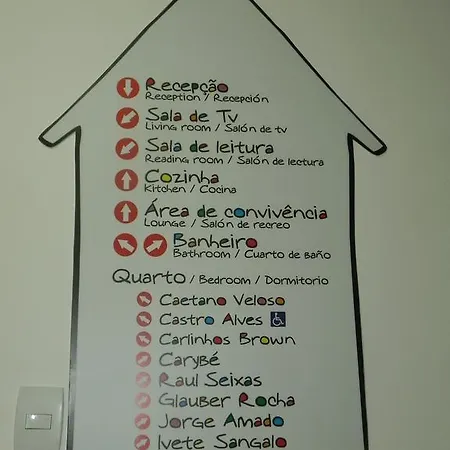 Recepção
Reception / Recepción
Sala de Tv
Living room / Salón de tv
Sala de leitura
Reading room / Salón de lectura
Cozinha
Kitchen / Cocina
Área de convivência
Lounge / Salón de recreo
Banheiro
Bathroom / Cuarto de baño
Quarto / Bedroom / Dormitorio
Caetano Veloso
Castro Alves
Carlinhos Brown
Carybé
Raul Seixas
Glauber Rocha
Jorge Amado
Ivete Sangalo